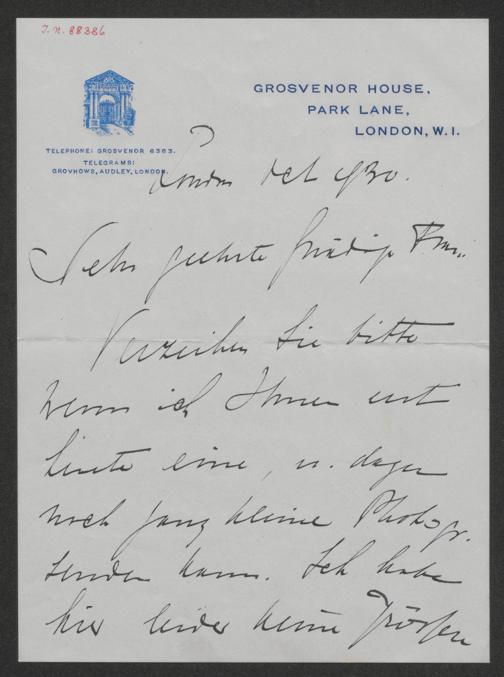 I.N. 88386
GROSVENOR HOUSE,
PARK LANE,
LONDON, W.1.
TELEPHONE: GROSVENOR 6363.
TELEGRAMS:
GROVHOWS, AUDLEY, LONDON.
London Oct 1930.
Sehr geehrte gnädige Frau.
Verzeihen Sie bitte
wenn ich Ihnen erst
heute eine, u. dazu
noch ganz kleine Photogr.
senden kann. Ich habe
hier leider keine Grössen